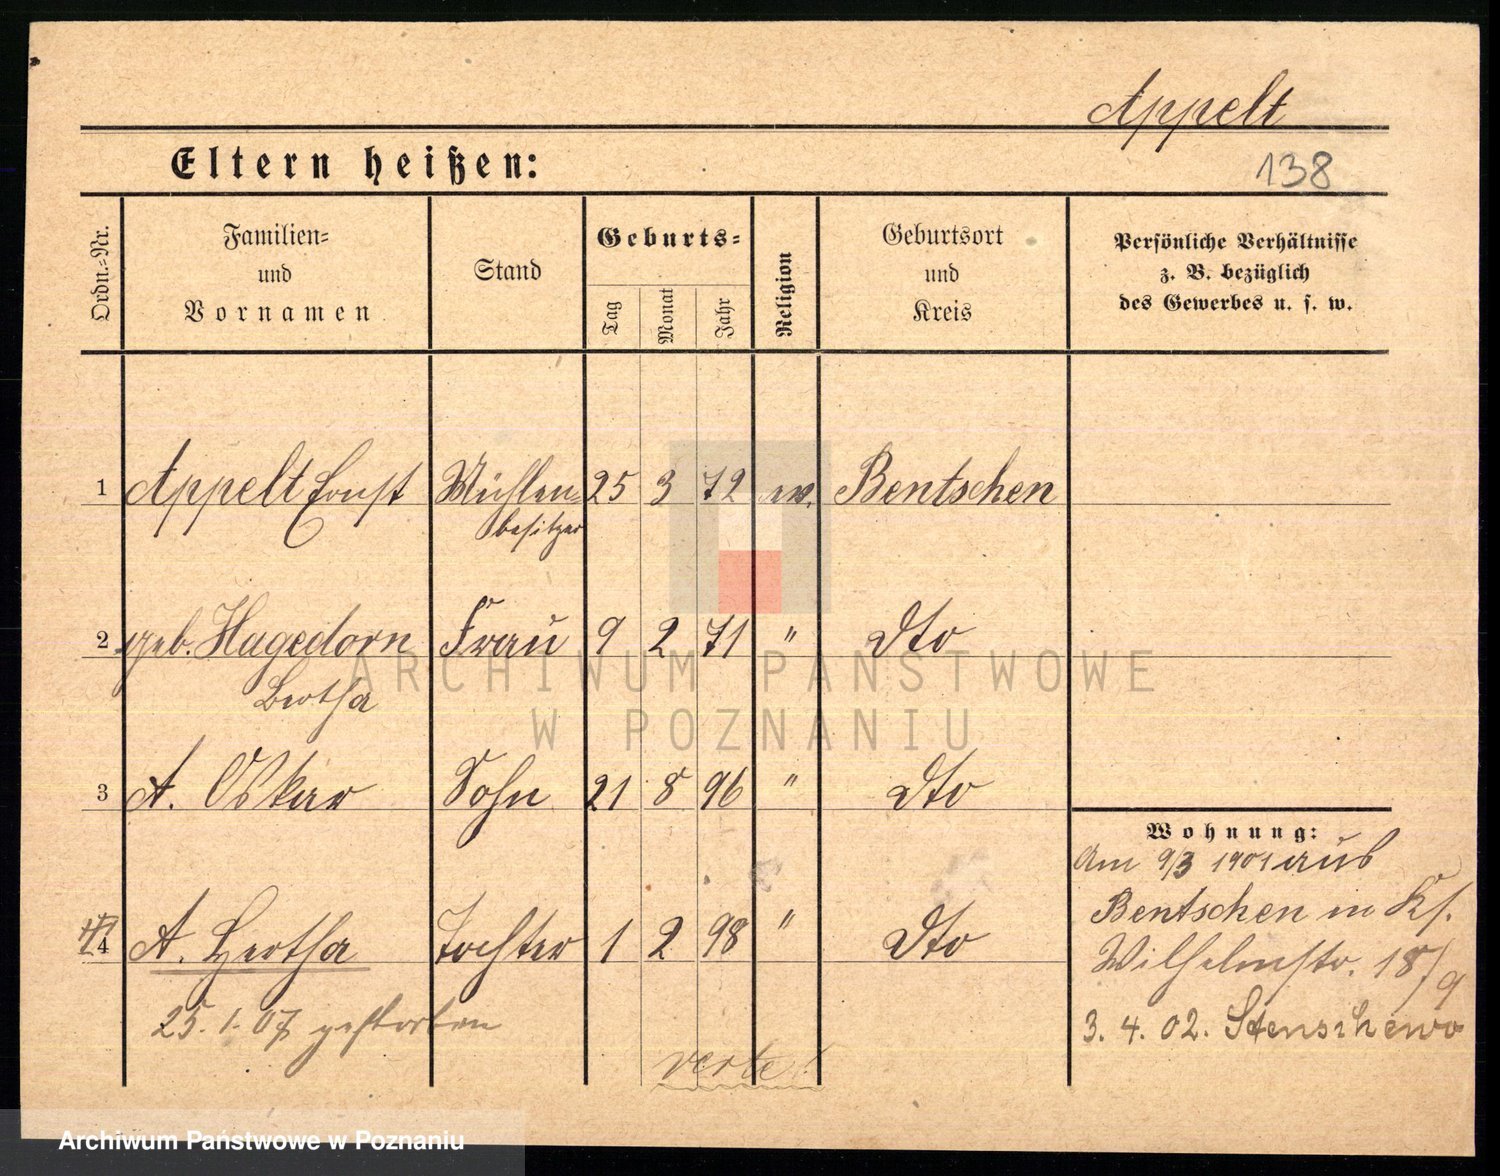 Appelt
Eltern heißen:
138
Ordn.=Nr.
Familien=
und
Vornamen
Stand
Geburts=
Tag
Monat
Jahr
Religion
Geburtsort
und
Kreis
Persönliche Verhältnisse
z. B. bezüglich
des Gewerbes u. s. w.
1 Appelt Ernst Mühlen= 25 3 72 ev. Bentschen
besitzer
2 geb. Hagedorn Frau 9 2 71 " dto
Bertha
3 A. Oskar Sohn 21 8 96 " dto
4 A. Hertha Tochter 1 2 98 " dto
25. 1. 07 gestorben
verte!
Wohnung:
Am 9/3 1901 aus
Bentschen in
Wilhelmstr. 18/9
3. 4. 02. Stenschewo
ARCHIWUM PAŃSTWOWE
W POZNANIU
Archiwum Państwowe w Poznaniu